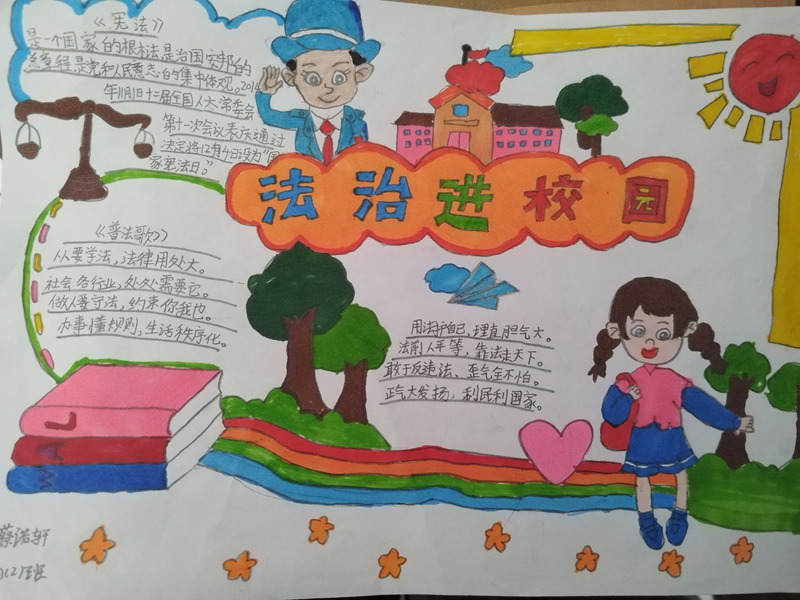 《宪法》
是一个国家的根本法,是治国安邦的
总章程,是党和人民意志的集中体现。2014
年11月1日十二届全国人大常委会
第十一次会议表决通过
决定将12月4日设为"国
家宪法日。"
法治进校园
《普法歌》
从要学法,法律用处大。
社会各行业,处处需要它。
做人要守法,约束你我他。
办事懂规则,生活秩序化。
用法护自己,理直胆气大。
法前人平等,靠法走天下。
敢于反违法、歪气全不怕。
正气大发扬,利民利国家。
蔡诺轩